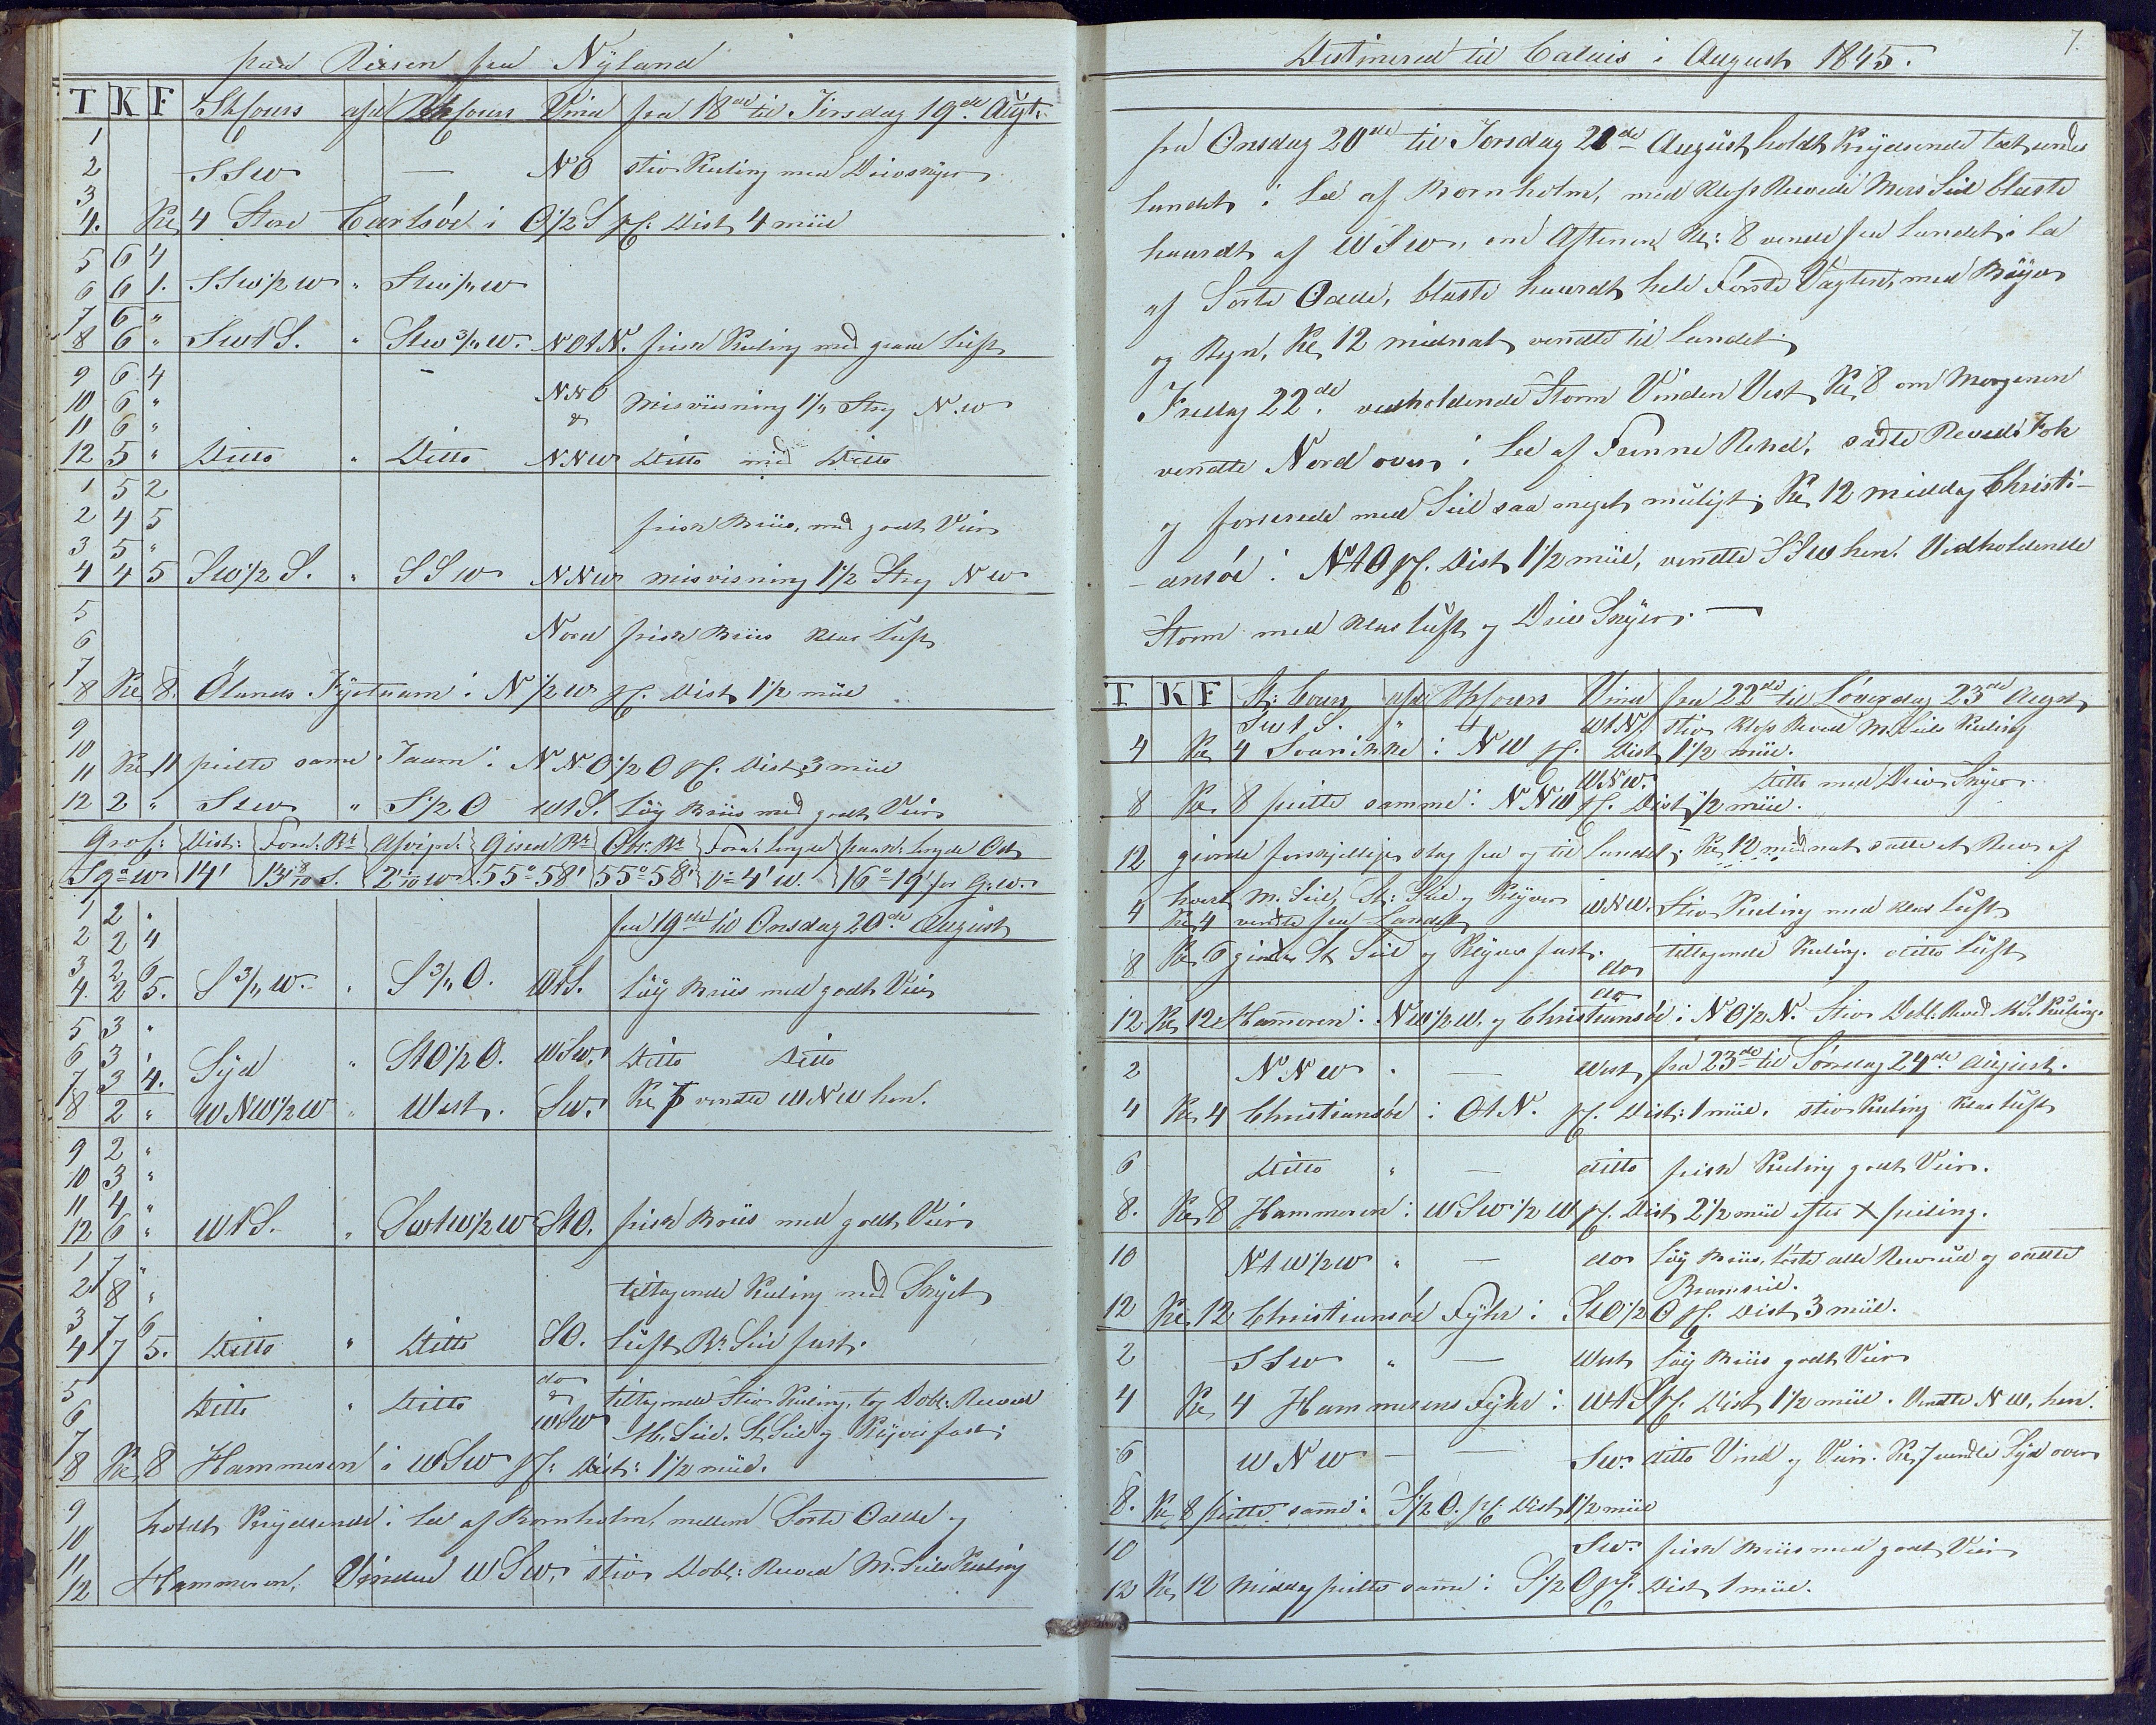 paa Reisen fra Nyland
T K F St Cours afd Bh Cours Vind fra 18de til Tirsdag 19de Augt.
1
2 SSW — NO stiv Kuling med Drivskyer
3
4. Kl 4 Store Carlsöe i O 1/2 S pC. Dist 4 miil
5 6 4
6 6 1. SSW 1/2 W "
7 6 "
8 6 " SWtS. " NOtN. frisk Kuling med graae Luft
9 6 4
10 6 " NNO Misviisning 1 1/2 Streg NW
11 6 " &
12 5 " Ditto " Ditto NNW Ditto med Ditto
1 5 2
2 4 5 frisk Briis, med godt Veir
3 5 "
4 4 5 SW 1/2 S. " SSW NNW misvisning 1 1/2 Streg NW
5
6 Nord frisk Briis klar Luft
7
8 Kl 8. Ölands Fyrtaarn i N 1/2 W pC. Dist 1 1/2 miil
9
10
11 Kl 11 peilte same Taarn i NNO 1/2 O pC. Dist 3 miil
12 2 " SSW " S 1/2 O WtS. Löy Briis med godt Veir
Dist: Forn: Br: Gissed Br: Obs. Br: Forn: Lengde Ost
S 9° W 14' 13 8/10 S. 2 1/10 W 55° 58' 55° 58' 0° 4' W. 16° 19' for Gr.W.
1 2 " fra 19de til Onsdag 20de August
2 2 4
3 2 6
4. 2 5. S 3/4 W. " S 3/4 O. WtS. Löy Briis med godt Veir
5 3 "
6 3 " Syd " StO 1/2 O. WSW. Ditto Ditto
7 3 4. Kl 7 vendte WNW hen.
8 2 " WNW 1/2 W " West. SW.
9 2 "
10 3 "
11 4 "
12 6 " WtS. " SWtW 1/2 W StO. frisk Briis med godt Veir
1 7 "
2 8 " tiltagende Kuling med Skyet
3 7 6
4 7 5. Ditto " Ditto SO. Luft Br: Seil fast.
5 do
6 Ditto " Ditto & tiltagende stiv Kuling, tog Dobl: Reevede
7 WSW M. Seil. St. Seil og Klyver fast.
8 Kl 8 Hammeren i WSW pC: Dist: 1 1/2 miil.
9
10 holdt Krydsende i Lee af Bornholm, mellem Sorte Odde og
11
12 Hammeren. Vinden WSW, stiv Dobl: Reeved M. Seils Kuling
Destinered til Calais i August 1845. 7.
fra Onsdag 20de til Torsdag 21de August holdt Krydsende tæt under
Landet i Læ af Bornholm, med Kloss Reevede Mers Seil blæste
haardt af WSW, om Aftenen Kl: 8 vendte fra Landet i La
af Sorte Odde, blæste haardt hele Förste Vagten, med Böyer
og Regn, Kl 12 midnat vendte til Landet
Fredag 22de. vedholdende Storm Vinden Vest, Kl 8 om Morgenen
vendte Nord over i Lee af Rehd, satte Reevede Fok
og forserede med Seil saa meget muligt; Kl 12 middag Christi-
-ansöe i NtO pC. Dist 1 1/2 miil, vendte SSW hen. Vedholdende
Storm med klar Luft og Driv Skyer. —
T K F St: Cours afd Bh Cours Vind fra 22de til Löverdag 23de Augst
SWtS. " WtN. stiv Kloss Reeved M. Seils Kuling
4 Kl 4 Svanikke i NW pC. Dist 1 1/2 miil.
WNW. Ditto med Driv Skyer
8 Kl 8 peilte samme i NNW pC. Dist 1/2 miil.
12 giorde forskjellige slag fra og til Landet; Kl 12 midnat satte et Reev af
hvert M. Seil, St: Seil og Klyver WNW. Stiv Kuling med klar Luft
4 Kl 4 vendte fra Landet
8 Kl 6 giorde St Seil og Klyver fast. do tiltagende Kuling. ditto Luft
do
12 Kl 12 Hammeren i NW 1/2 W. og Christiansöe i NO 1/2 N. Stiv Dobl. Reved M.S. Kuling
2 NNW. — West fra 23de til Sönndag 24de August.
4 Kl 4 Christiansöe i OtN. pC. Dist: 1 miil. stiv Kuling klar Luft
6 Ditto " — ditto frisk Kuling godt Veir.
8. Kl 8 Hammeren i WSW 1/2 W pC. Dist 2 1/2 miil efter X peiling.
10 NtW 1/2 W " — do Löy Briis, löste alle Reev ud og satte
Bramseil.
12 Kl 12 Christiansöe Fyhr i StO 1/2 O pC. Dist 3 miil.
2 SSW " — West Löy Briis godt Veir
4 Kl 4 Hammerens Fyhr i WtS pC. Dist 1 1/2 miil. Vendte NW. hen.
6 WNW — — SW. ditto Vind og Veir. Kl 7 vendte Syd over
8. Kl 8 peilte same i S 1/2 O. pC. Dist 1 1/2 miil
10 SW. frisk Briis med godt Veir
12 Kl 12 Middag peilte same i S 1/2 O pC. Dist 1 miil.